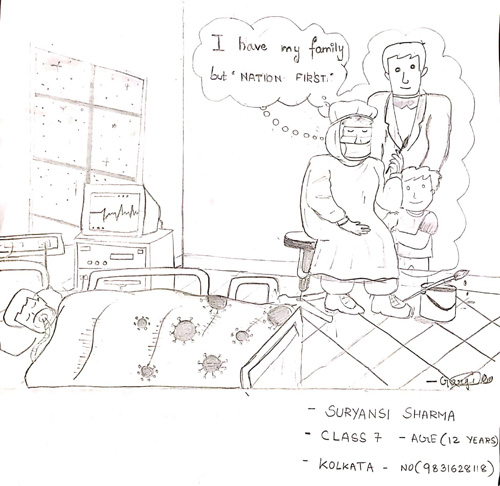 I have my family
but "NATION FIRST."
- SURYANSI SHARMA
- CLASS 7 - AGE (12 YEARS)
- KOLKATA - NO(9831628118)